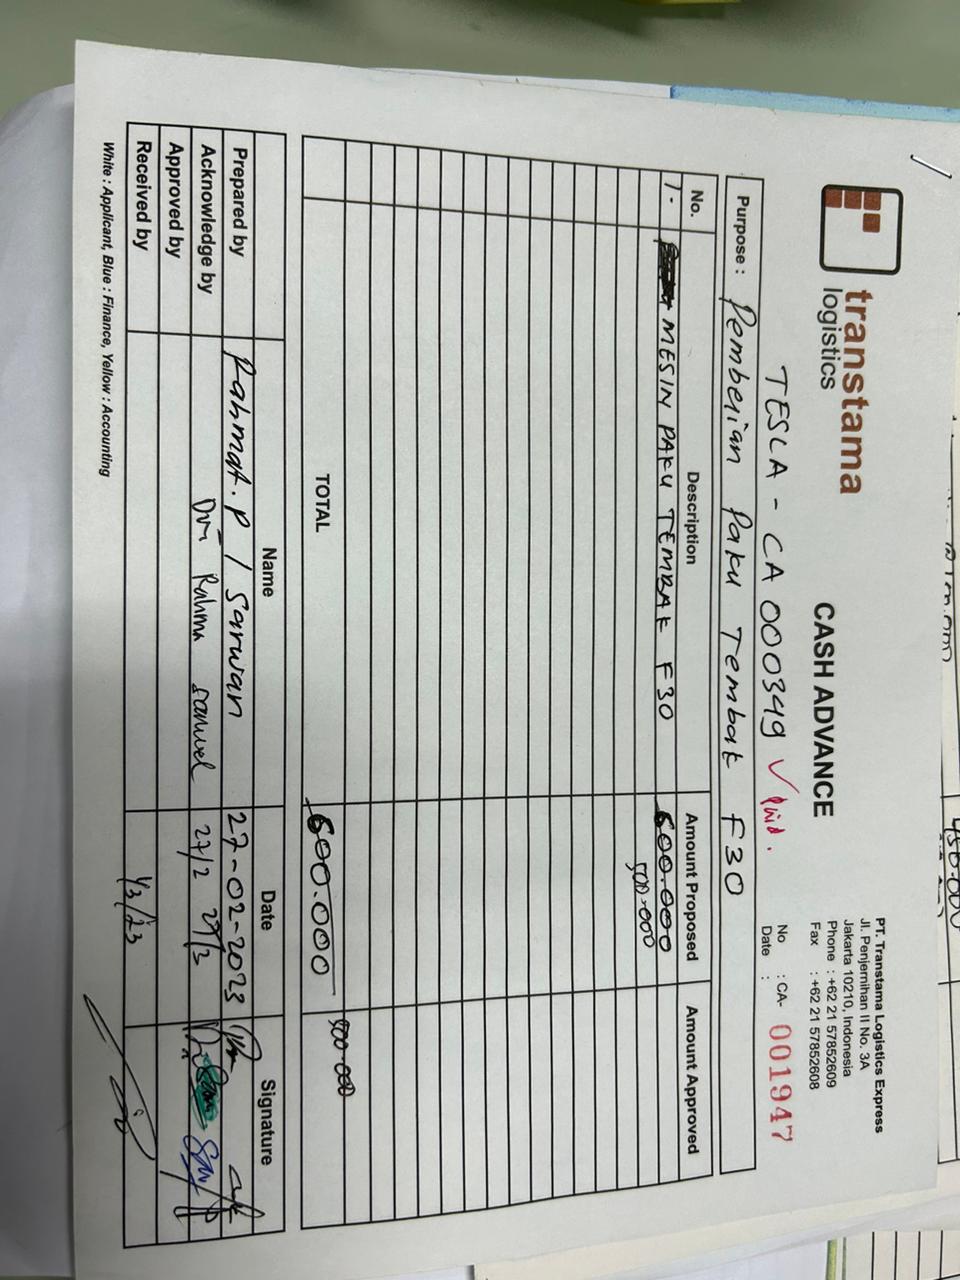 transtama
logistics
CASH ADVANCE
PT. Transtama Logistics Express
Jl. Penjernihan II No. 3A
Jakarta 10210, Indonesia
Phone : +62 21 57852609
Fax : +62 21 57852608
TESLA - CA 000349 ✓ paid.
No : CA- 001947
Date :
Purpose : Pembelian Paku Tembak F30
No. Description Amount Proposed Amount Approved
1. MESIN PAKU TEMBAK F30 600.000
500.000
500.000
TOTAL 600.000
Name Date Signature
Prepared by Rahmat. P / Sarwan 27-02-2023
Acknowledge by Dwi Rahma Samuel 27/2
Approved by
Received by 1/3/23
White : Applicant, Blue : Finance, Yellow : Accounting